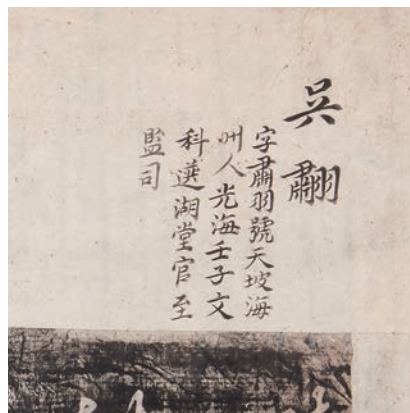 吳翿
字肅羽號天坡海
州人光海壬子文
科選湖堂官至
監司